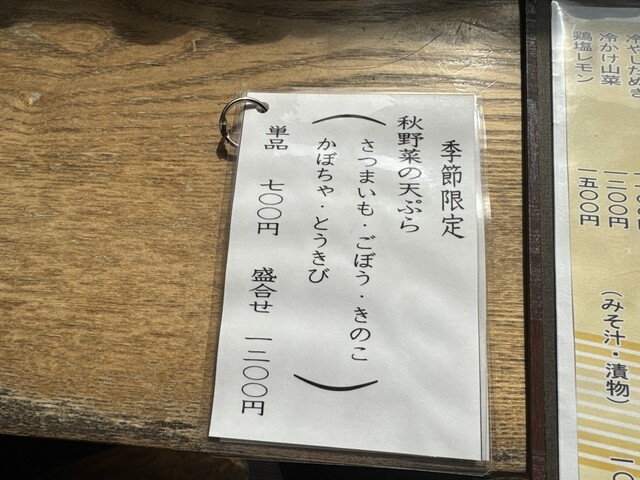 冷やしたぬき
冷かけ山菜
一二〇〇円
鶏塩レモン
一五〇〇円
(みそ汁・漬物)
季節限定
秋野菜の天ぷら
(さつまいも・ごぼう・きのこ
かぼちゃ・とうきび)
単品 七〇〇円 盛合せ 一二〇〇円